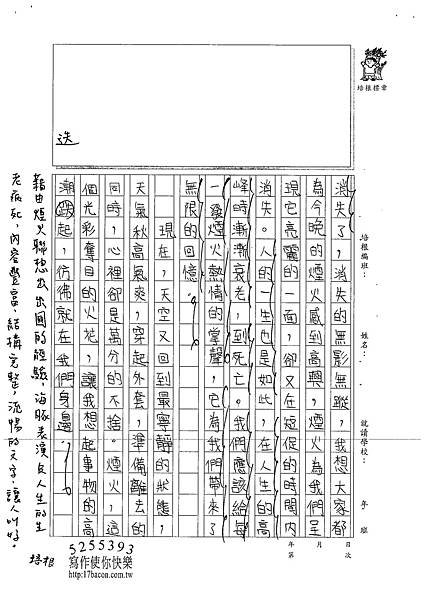 培根楷章
培根編班：
姓名：
就讀學校：
年　班
月　日
第　次
消失了，消失的無影無蹤，我想大家都
為今晚的煙火感到高興，煙火為我們呈
現它亮麗的一面，卻又在短促的時間內
消失。人的一生也是如此，在人生的高
峰時漸漸衰老，到死亡。我們應該給每
一發煙火熱情的掌聲，它為我們帶來了
無限的回憶。
現在，天空又回到最寧靜的狀態，
天氣秋高氣爽，穿起外套，準備離去的
同時，心裡卻是萬分的不捨。煙火，這
個光彩奪目的火花，讓我想起事物的高
潮起，仿彿就在我們身邊。
藉由煙火聯想出出國的經驗，海豚表演及人生的生
老病死，內容豐富，結構完整，流暢的文字，讓人叫好。
培根
5255393
寫作使你快樂
http://17bacon.com.tw